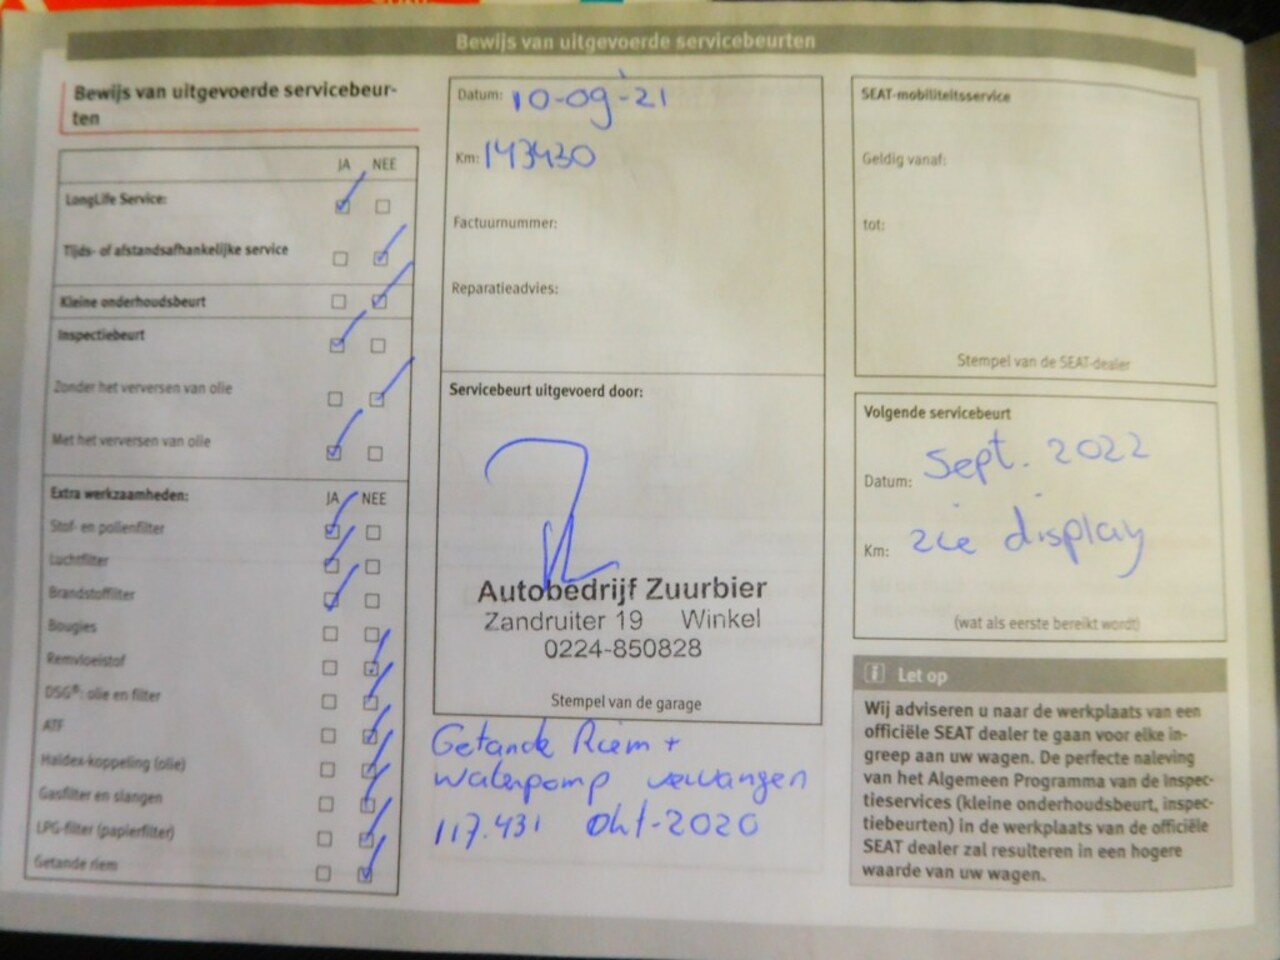 Bewijs van uitgevoerde servicebeurten
Bewijs van uitgevoerde servicebeur-
ten
JA NEE
LongLife Service:
Tijds- of afstandsafhankelijke service
Kleine onderhoudsbeurt
Inspectiebeurt
Zonder het verversen van olie
Met het verversen van olie
Extra werkzaamheden: JA NEE
Stof- en pollenfilter
Luchtfilter
Brandstoffilter
Bougies
Remvloeistof
DSG®: olie en filter
ATF
Haldex-koppeling (olie)
Gasfilter en slangen
LPG-filter (papierfilter)
Getande riem
Datum: 10-09-21
Km: 143430
Factuurnummer:
Reparatieadvies:
Servicebeurt uitgevoerd door:
Autobedrijf Zuurbier
Zandruiter 19 Winkel
0224-850828
Stempel van de garage
Getande Riem +
waterpomp vervangen
117.431 Okt-2020
SEAT-mobiliteitsservice
Geldig vanaf:
tot:
Stempel van de SEAT-dealer
Volgende servicebeurt
Datum: Sept. 2022
Km: zie display
(wat als eerste bereikt wordt)
Let op
Wij adviseren u naar de werkplaats van een
officiële SEAT dealer te gaan voor elke in-
greep aan uw wagen. De perfecte naleving
van het Algemeen Programma van de Inspec-
tieservices (kleine onderhoudsbeurt, inspec-
tiebeurten) in de werkplaats van de officiële
SEAT dealer zal resulteren in een hogere
waarde van uw wagen.